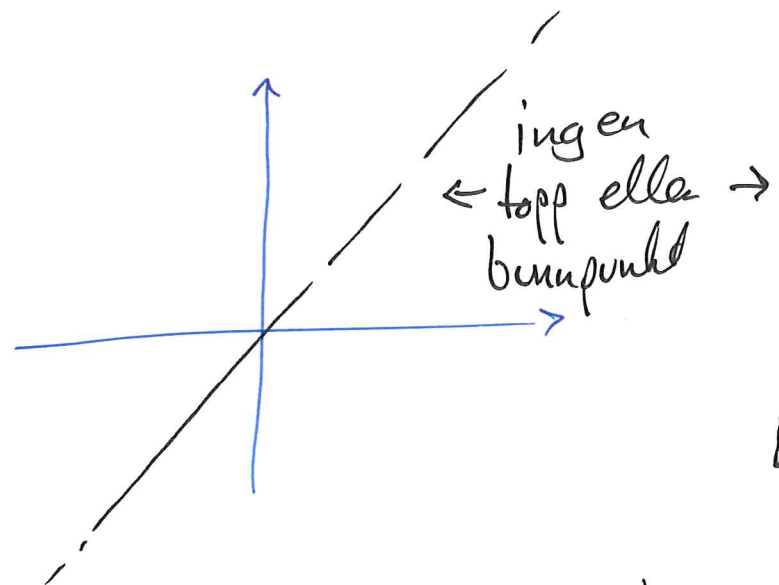 ingen
← topp eller →
bunnpunkt